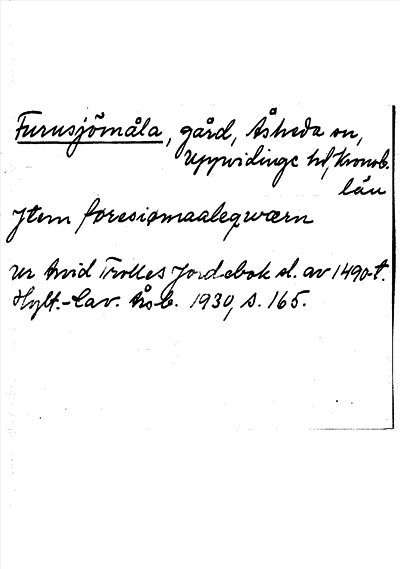 Furusjömåla, gård, Åsheda sn,
Uppvidinge hd, Kronob.
län
Jtem foresiomaaleqwærn
ur Arvid Trolles Jordebok sl. av 1490-t.
Hylt.-Cav. Årsb. 1930, s. 165.